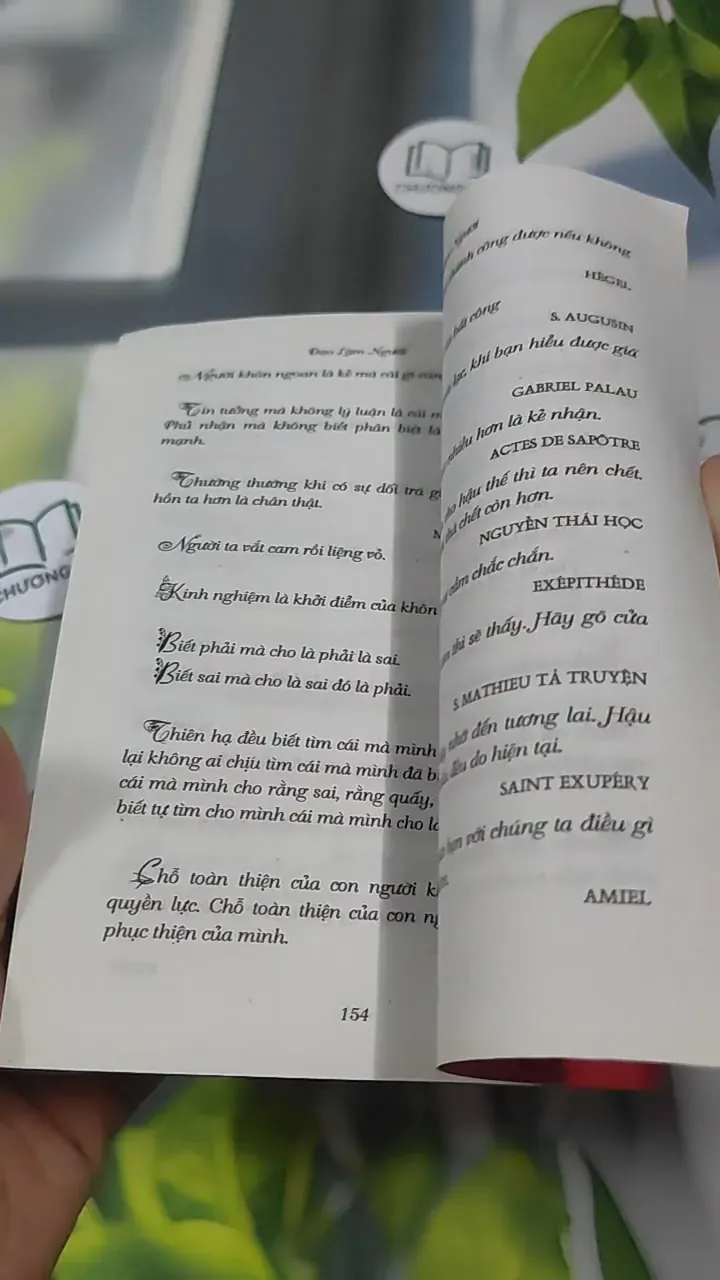 Đạo Làm Người
Người khôn ngoan là kẻ mà cái gì
Tin tưởng mà không lý luận là cái
Phủ nhận mà không biết phân biệt là
mạnh.
Thường thường khi có sự dối trá
hồn ta hơn là chân thật.
Người ta vắt cam rồi liệng vỏ.
Kinh nghiệm là khởi điểm của khôn
Biết phải mà cho là phải là sai.
Biết sai mà cho là sai đó là phải.
Thiên hạ đều biết tìm cái mà mình
lại không ai chịu tìm cái mà mình đã
cái mà mình cho rằng sai, rằng quấy,
biết tự tìm cho mình cái mà mình cho
Chỗ toàn thiện của con người
quyền lực. Chỗ toàn thiện của con
phục thiện của mình.
154
Người
thành công được nếu không
HÈGEL
bất công
S. AUGUSIN
lạc, khi bạn hiểu được giá
GABRIEL PALAU
nhiều hơn là kẻ nhận.
ACTES DE SAPÔTRE
cho hậu thế thì ta nên chết.
chết còn hơn.
NGUYỄN THÁI HỌC
cảm chắc chắn.
EXÉPITHÈDE
thì sẽ thấy. Hãy gõ cửa
S. MATHIEU TẢ TRUYỆN
nhớ đến tương lai. Hậu
đều do hiện tại.
SAINT EXUPÉRY
hơn với chúng ta điều gì
AMIEL
CHƯƠNG